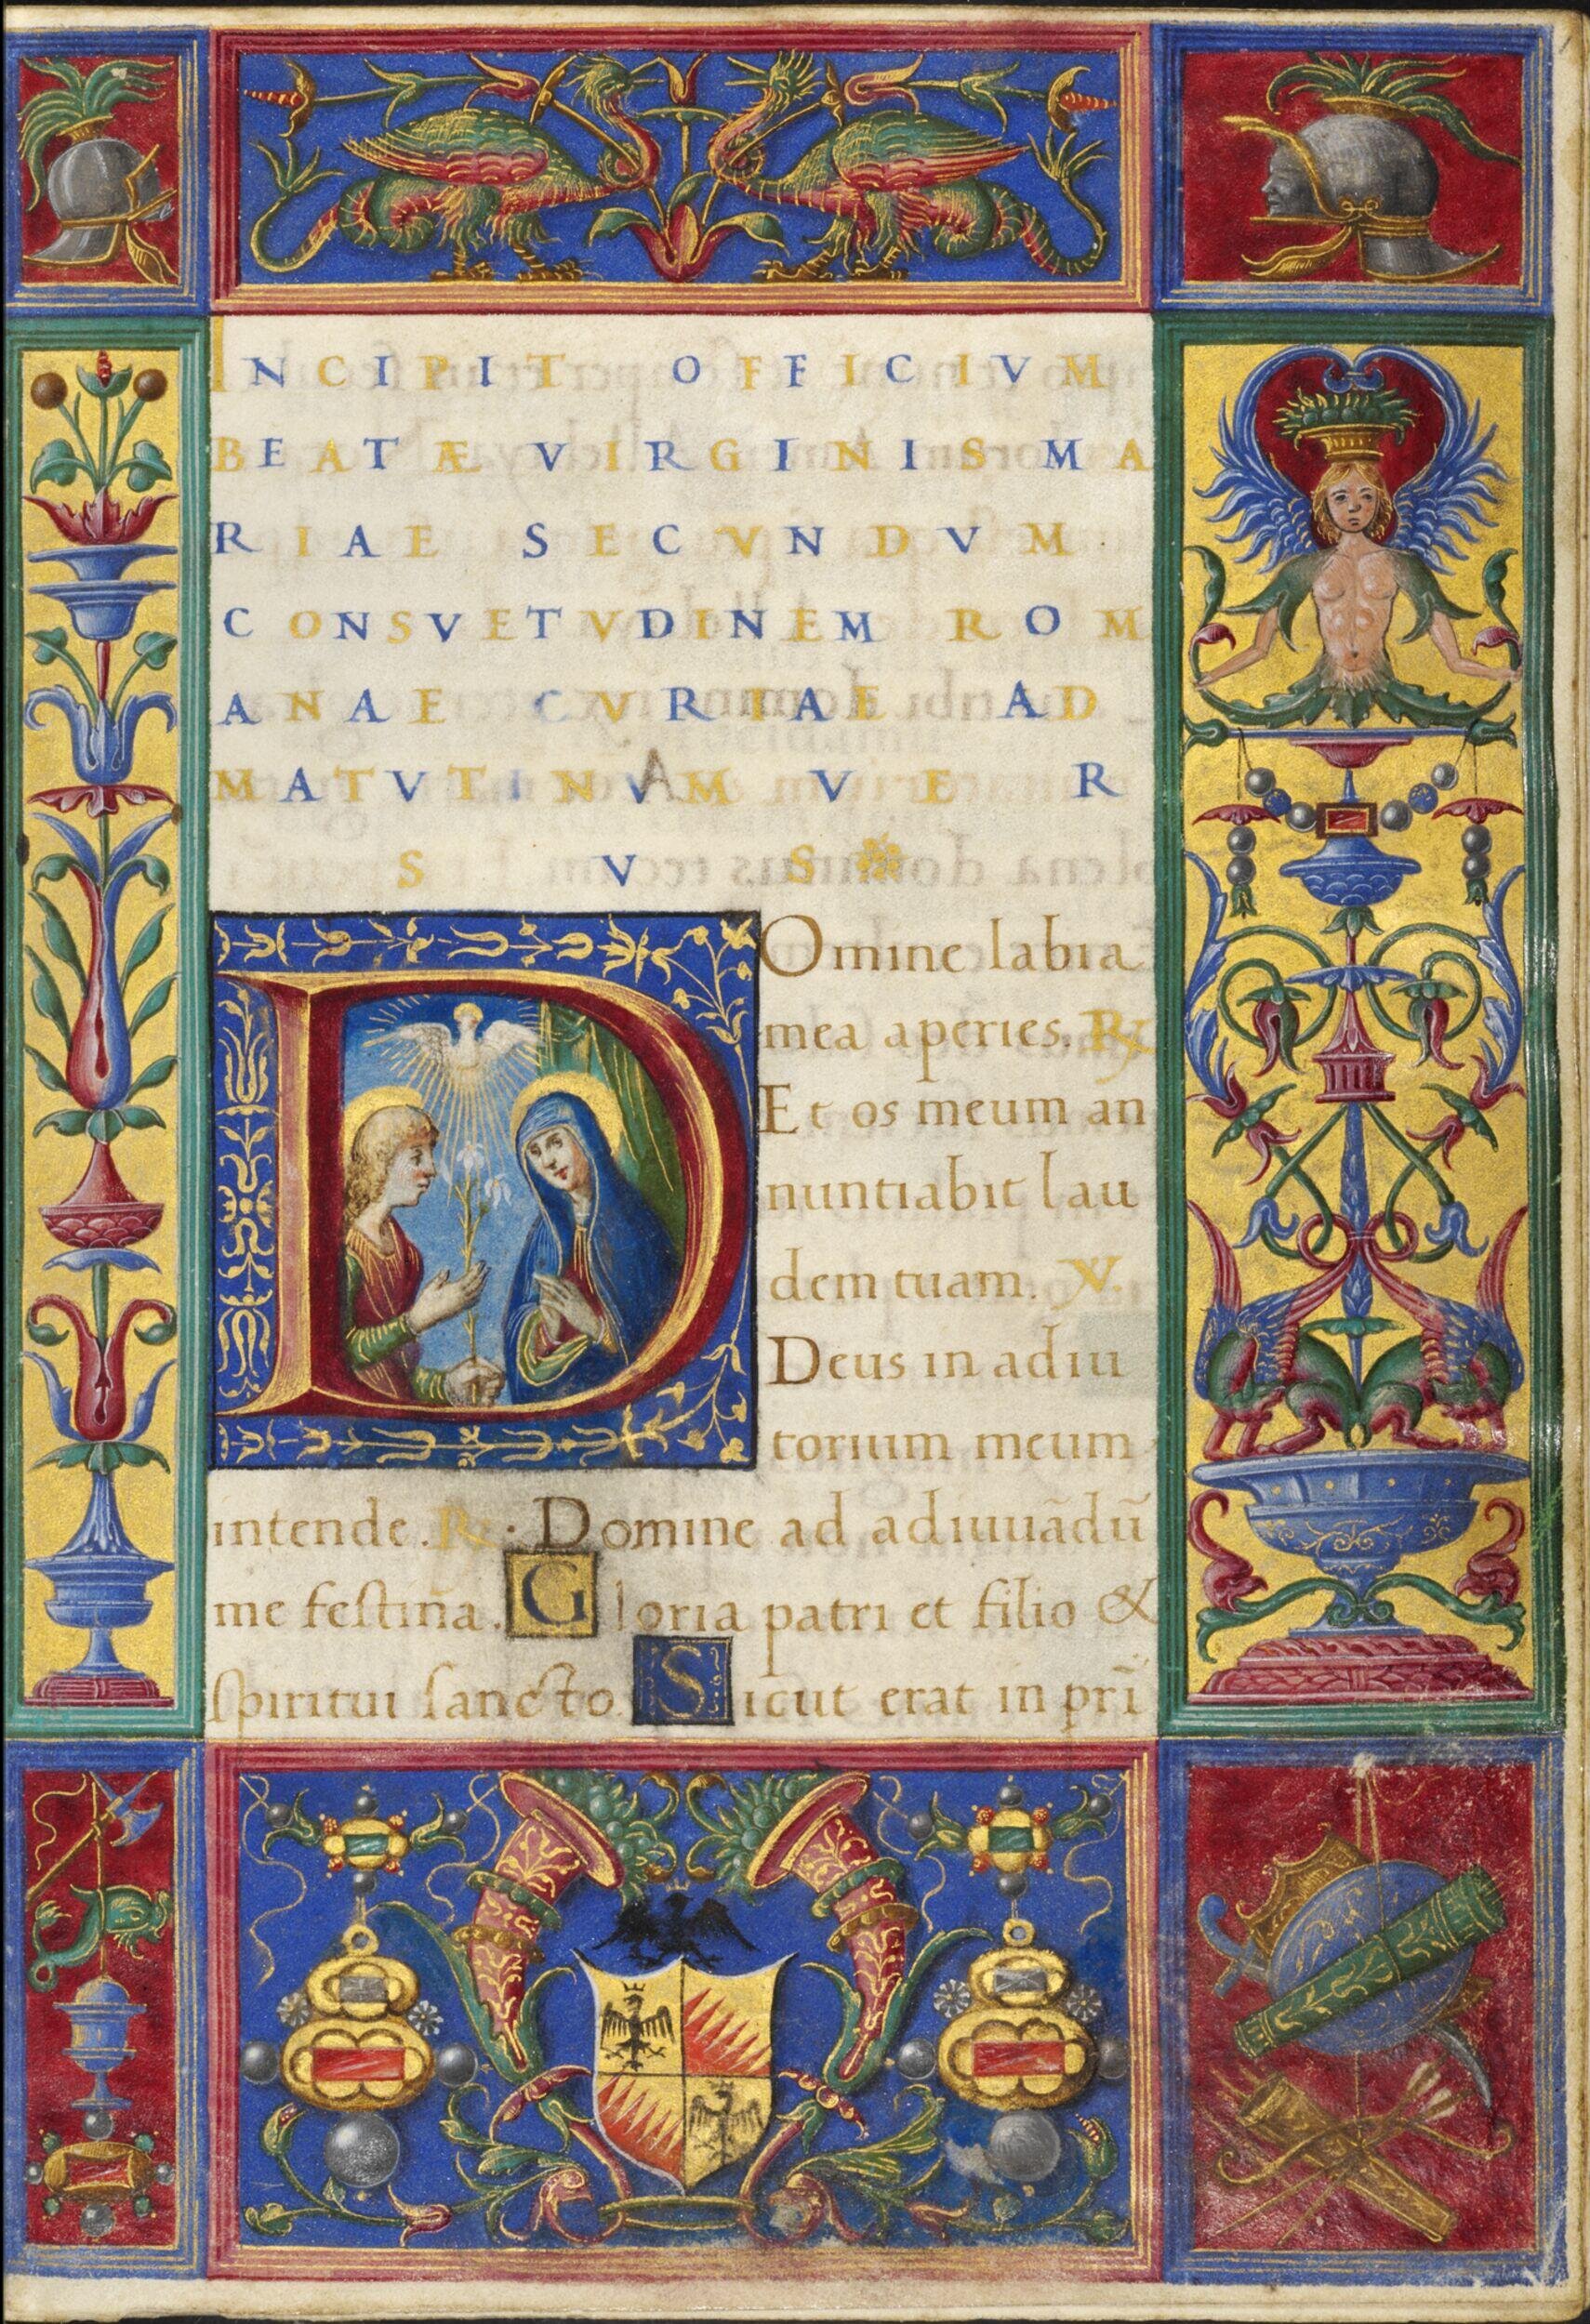 INCIPIT OFFICIVM
BEATÆ VIRGINIS MA
RIAE SECVNDVM
CONSVETVDINEM ROM
ANAE CVRIAE AD
MATVTINVAM VER
SVS
DOmine labia
mea aperies. ℟
Et os meum an
nuntiabit lau
dem tuam. ℣.
Deus in adiu
torium meum
intende. ℟. Domine ad adiuuãdũ
me festina. Gloria patri et filio &
spiritui sancto. Sicut erat in prĩ